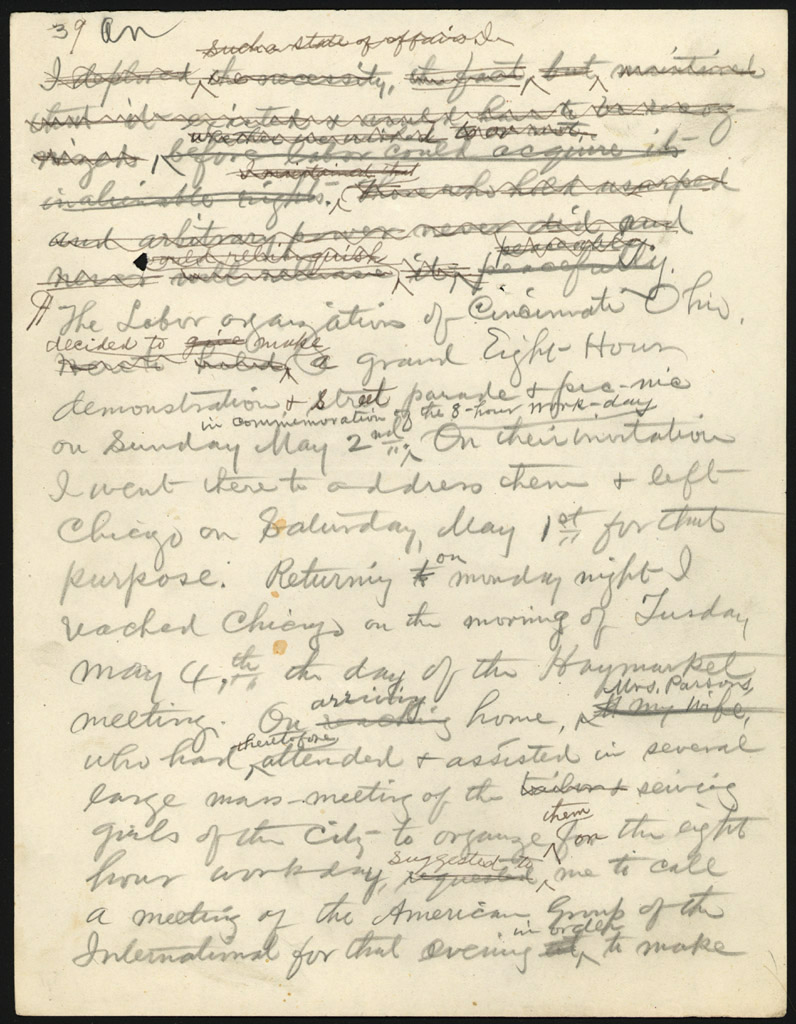 39 An
such a state of affairs I
I deplored, the necessity, the fact, but, maintained
that it existed & would have to be recog-
whether we wished to or not
nized, before labor could acquire its
I maintained that
inalienable rights. Those who hold usurped
and arbitrary power never did and
would relinquish peaceably.
never will release, it, peacefully.
¶ The Labor organizations of Cincinnati Ohio,
decided to give make
held, a grand Eight-Hour
demonstration & Street parade & pic-nic
in commemoration of the 8-hour work-day
on Sunday May 2nd. On their invitation
I went there to address them & left
Chicago on Saturday, May 1st for that
purpose. Returning on monday night I
reached Chicago on the morning of Tuesday
May 4,th the day of the Haymarket
arriving Mrs. Parsons,
meeting. On reaching home, my wife,
theretofore
who had attended & assisted in several
large mass-meeting of the tailor & sewing
girls of the City to organize for the eight
them
suggested to
hour workday, requested me to call
a meeting of the American Group of the
in order
International for that evening to make